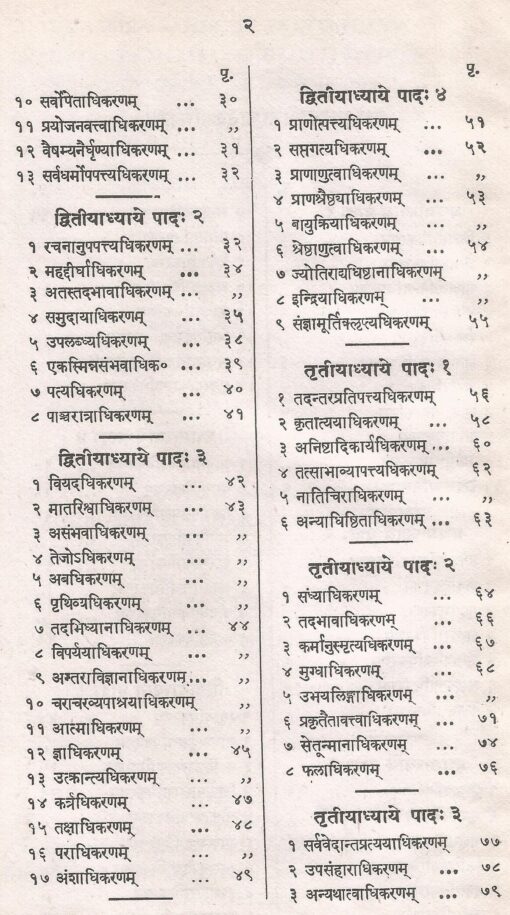 २
पृ.
१० सर्वोपेताधिकरणम् ... ३०
११ प्रयोजनवत्त्वाधिकरणम् ... ,,
१२ वैषम्यनैर्घृण्याधिकरणम् ... ३१
१३ सर्वधर्मोपपत्त्यधिकरणम् ... ३२
द्वितीयाध्याये पादः २
१ रचनानुपपत्त्यधिकरणम् ... ३२
२ महद्दीर्घाधिकरणम् ... ३४
३ अतस्तदभावाधिकरणम् ... ,,
४ समुदायाधिकरणम् ... ३५
५ उपलब्ध्यधिकरणम् ... ३८
६ एकस्मिन्नसंभवाधिक० ... ३९
७ पत्यधिकरणम् ... ४०
८ पाञ्चरात्राधिकरणम् ... ४१
द्वितीयाध्याये पादः ३
१ वियदधिकरणम् ... ४२
२ मातरिश्वाधिकरणम् ... ४३
३ असंभवाधिकरणम् ... ,,
४ तेजोऽधिकरणम् ... ,,
५ अबधिकरणम् ... ,,
६ पृथिव्यधिकरणम् ... ,,
७ तदभिध्यानाधिकरणम् ... ४४
८ विपर्ययाधिकरणम् ... ,,
९ अन्तराविज्ञानाधिकरणम्... ,,
१० चराचरव्यपाश्रयाधिकरणम् ,,
११ आत्माधिकरणम् ... ,,
१२ ज्ञाधिकरणम् ... ४५
१३ उत्क्रान्त्यधिकरणम् ... ,,
१४ कर्त्रधिकरणम् ... ४७
१५ तक्षाधिकरणम् ... ४८
१६ पराधिकरणम् ... ,,
१७ अंशाधिकरणम् ... ४९
पृ.
द्वितीयाध्याये पादः ४
१ प्राणोत्पत्त्यधिकरणम् ... ५१
२ सप्तगत्यधिकरणम् ... ५२
३ प्राणाणुत्वाधिकरणम् ... ,,
४ प्राणश्रैष्ठ्याधिकरणम् ... ५३
५ वायुक्रियाधिकरणम् ... ,,
६ श्रेष्ठाणुत्वाधिकरणम् ... ५४
७ ज्योतिराद्यधिष्ठानाधिकरणम् ,,
८ इन्द्रियाधिकरणम् ... ,,
९ संज्ञामूर्तिक्लृप्त्यधिकरणम् ५५
तृतीयाध्याये पादः १
१ तदन्तरप्रतिपत्त्यधिकरणम् ५६
२ कृतात्ययाधिकरणम् ... ५८
३ अनिष्टादिकार्यधिकरणम् ... ६०
४ तत्साभाव्यापत्त्यधिकरणम् ६२
५ नातिचिराधिकरणम् ... ,,
६ अन्याधिष्ठिताधिकरणम् ... ६३
तृतीयाध्याये पादः २
१ संध्याधिकरणम् ... ६४
२ तदभावाधिकरणम् ... ६६
३ कर्मानुस्मृत्यधिकरणम् ... ६७
४ मुग्धाधिकरणम् ... ६८
५ उभयलिङ्गाधिकरणम् ... ,,
६ प्रकृतैतावत्त्वाधिकरणम् ... ७१
७ सेतून्मानाधिकरणम् ... ७४
८ फलाधिकरणम् ... ७६
तृतीयाध्याये पादः ३
१ सर्ववेदान्तप्रत्ययाधिकरणम् ७७
२ उपसंहाराधिकरणम् ... ७८
३ अन्यथात्वाधिकरणम् ... ७९